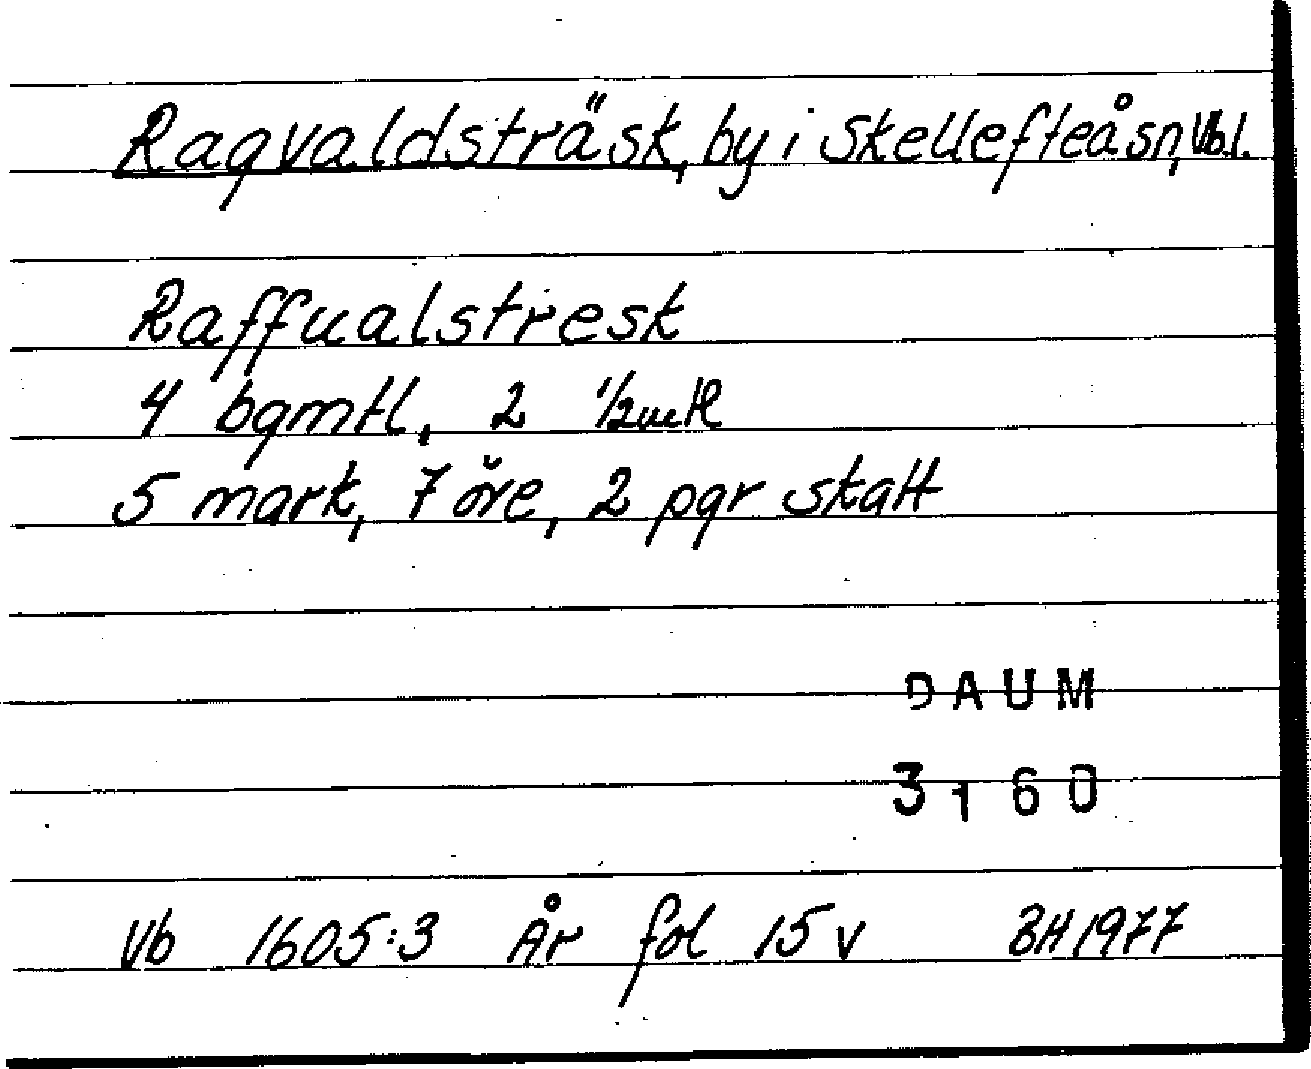 Ragvaldsträsk, by i Skellefteå sn, Vb.l.
Raffualstresk
4 bgmtl, 2 1/2mtl
5 mark, 7 öre, 2 pgr skatt
DAUM
3160
Vb 1605:3 År fol 15 v BH 1977